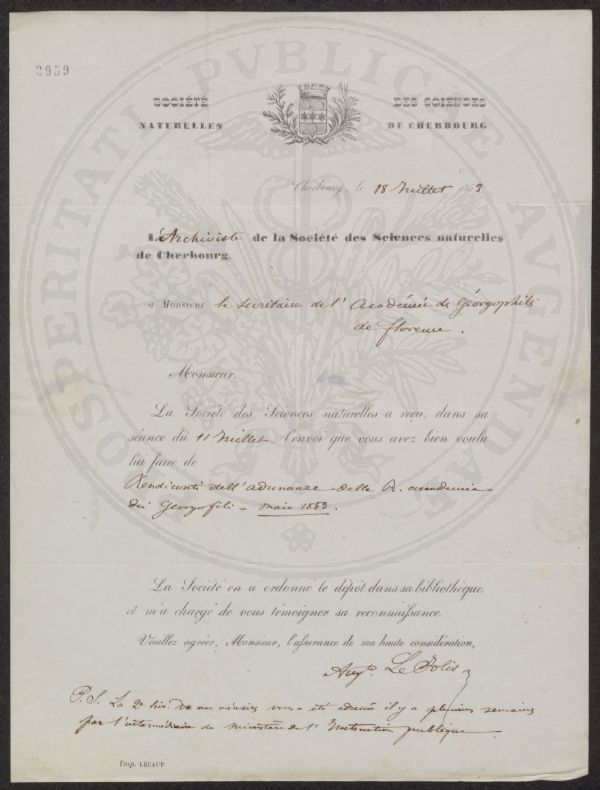 2959
SOCIÉTÉ DES SCIENCES
NATURELLES DE CHERBOURG
PROSPERITATI PVBLICAE AVGENDAE
Cherbourg, le 18 Juillet 1853
L'Archiviste de la Société des Sciences naturelles
de Cherbourg,
à Monsieur le secrétaire de l'Académie de Géorgophili
de florence.
Monsieur,
La Société des Sciences naturelles a reçu, dans sa
séance du 11 Juillet, l'envoi que vous avez bien voulu
lui faire de
Rendiconti dell'adunanze della R. accademia
dei georgofili - main 1853.
La Société en a ordonné le dépôt dans sa bibliothèque,
et m'a chargé de vous témoigner sa reconnaissance.
Veuillez agréer, Monsieur, l'assurance de ma haute considération,
Augte Le Jolis
P.S. La 2e liv. de nos mémoires vous a été adressée il y a plusieurs semaines
par l'intermédiaire du ministère de l'Instruction publique.
Imp. LECAUF